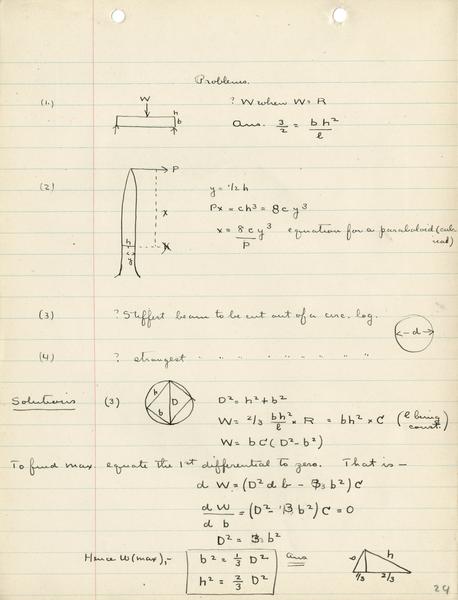 Problems.
(1.) W h b ? W when W = R
Ans. 3/2 = bh²/l
(2) P x h y
y = ½ h
Px = ch³ = 8cy³
x = 8cy³/P equation for a paraboloid (cubical)
(3) ? Stiffest beam to be cut out of a circ. log. d
(4) ? strongest " " " " " " "
Solutions (3) b D b
D² = h² + b²
W = 2/3 bh²/l × R = bh² × C (l being const.)
W = b C (D² - b²)
To find max. equate the 1st differential to zero. That is —
dW = (D² db - 3b²) C
dW/db = (D² - 3b²) C = 0
D² = 3b²
Hence W (max),- b² = 1/3 D² Ans
h² = 2/3 D²
b h 1/3 2/3
24